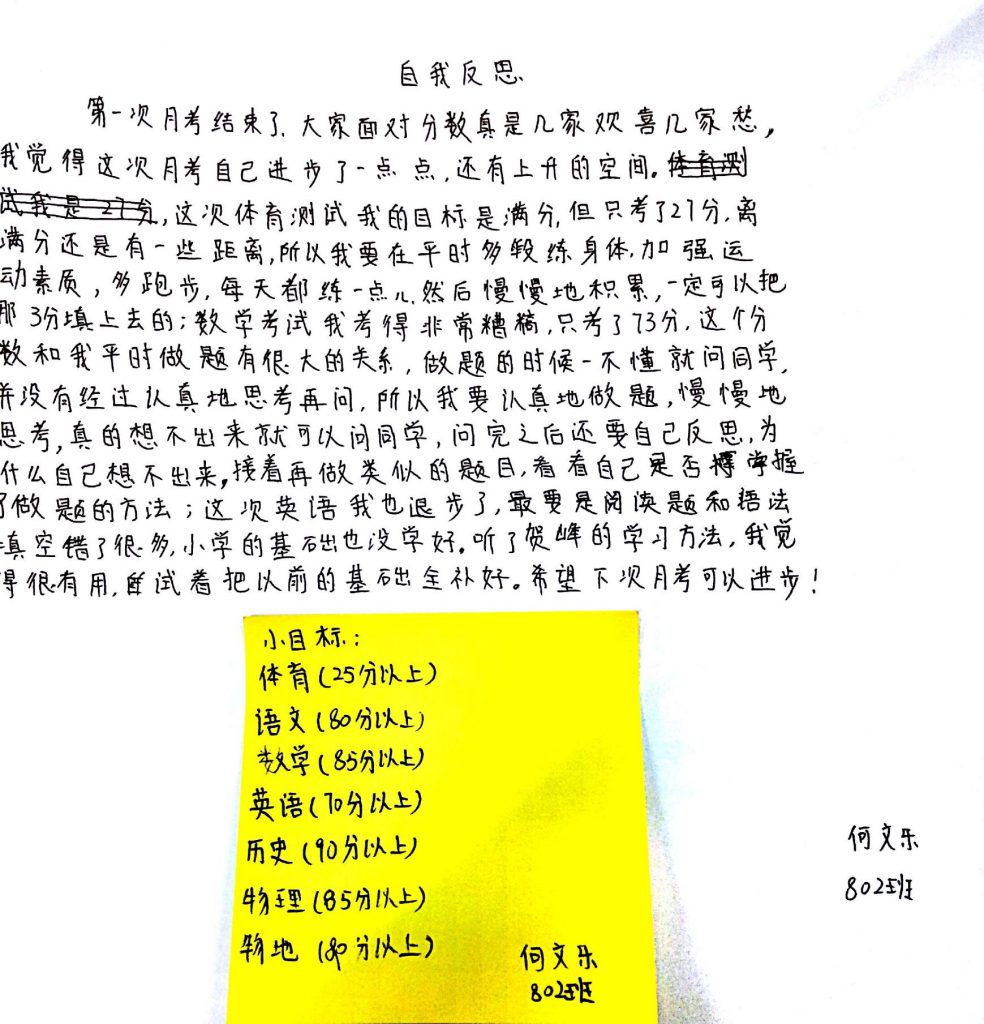 自我反思
第一次月考结束了.大家面对分数真是几家欢喜几家愁,
我觉得这次月考自己进步了一点点,还有上升的空间。体育测
试我是27分,这次体育测试我的目标是满分,但只考了27分,离
满分还是有一些距离,所以我要在平时多锻练身体,加强运
动素质,多跑步,每天都练一点儿,然后慢慢地积累,一定可以把
那3分填上去的;数学考试我考得非常糟糕,只考了73分,这个分
数和我平时做题有很大的关系,做题的时候一不懂就问同学,
并没有经过认真地思考再问,所以我要认真地做题,慢慢地
思考,真的想不出来就可以问同学,问完之后还要自己反思,为
什么自己想不出来,接着再做类似的题目,看看自己是否掌握
了做题的方法;这次英语我也退步了,最要是阅读题和语法
填空错了很多,小学的基础也没学好。听了贺峰的学习方法,我觉
得很有用,试着把以前的基础全补好。希望下次月考可以进步!
小目标:
体育(25分以上)
语文(80分以上)
数学(85分以上)
英语(70分以上)
历史(90分以上)
物理(85分以上)
地(80分以上)
何文乐
802班
何文乐
802班